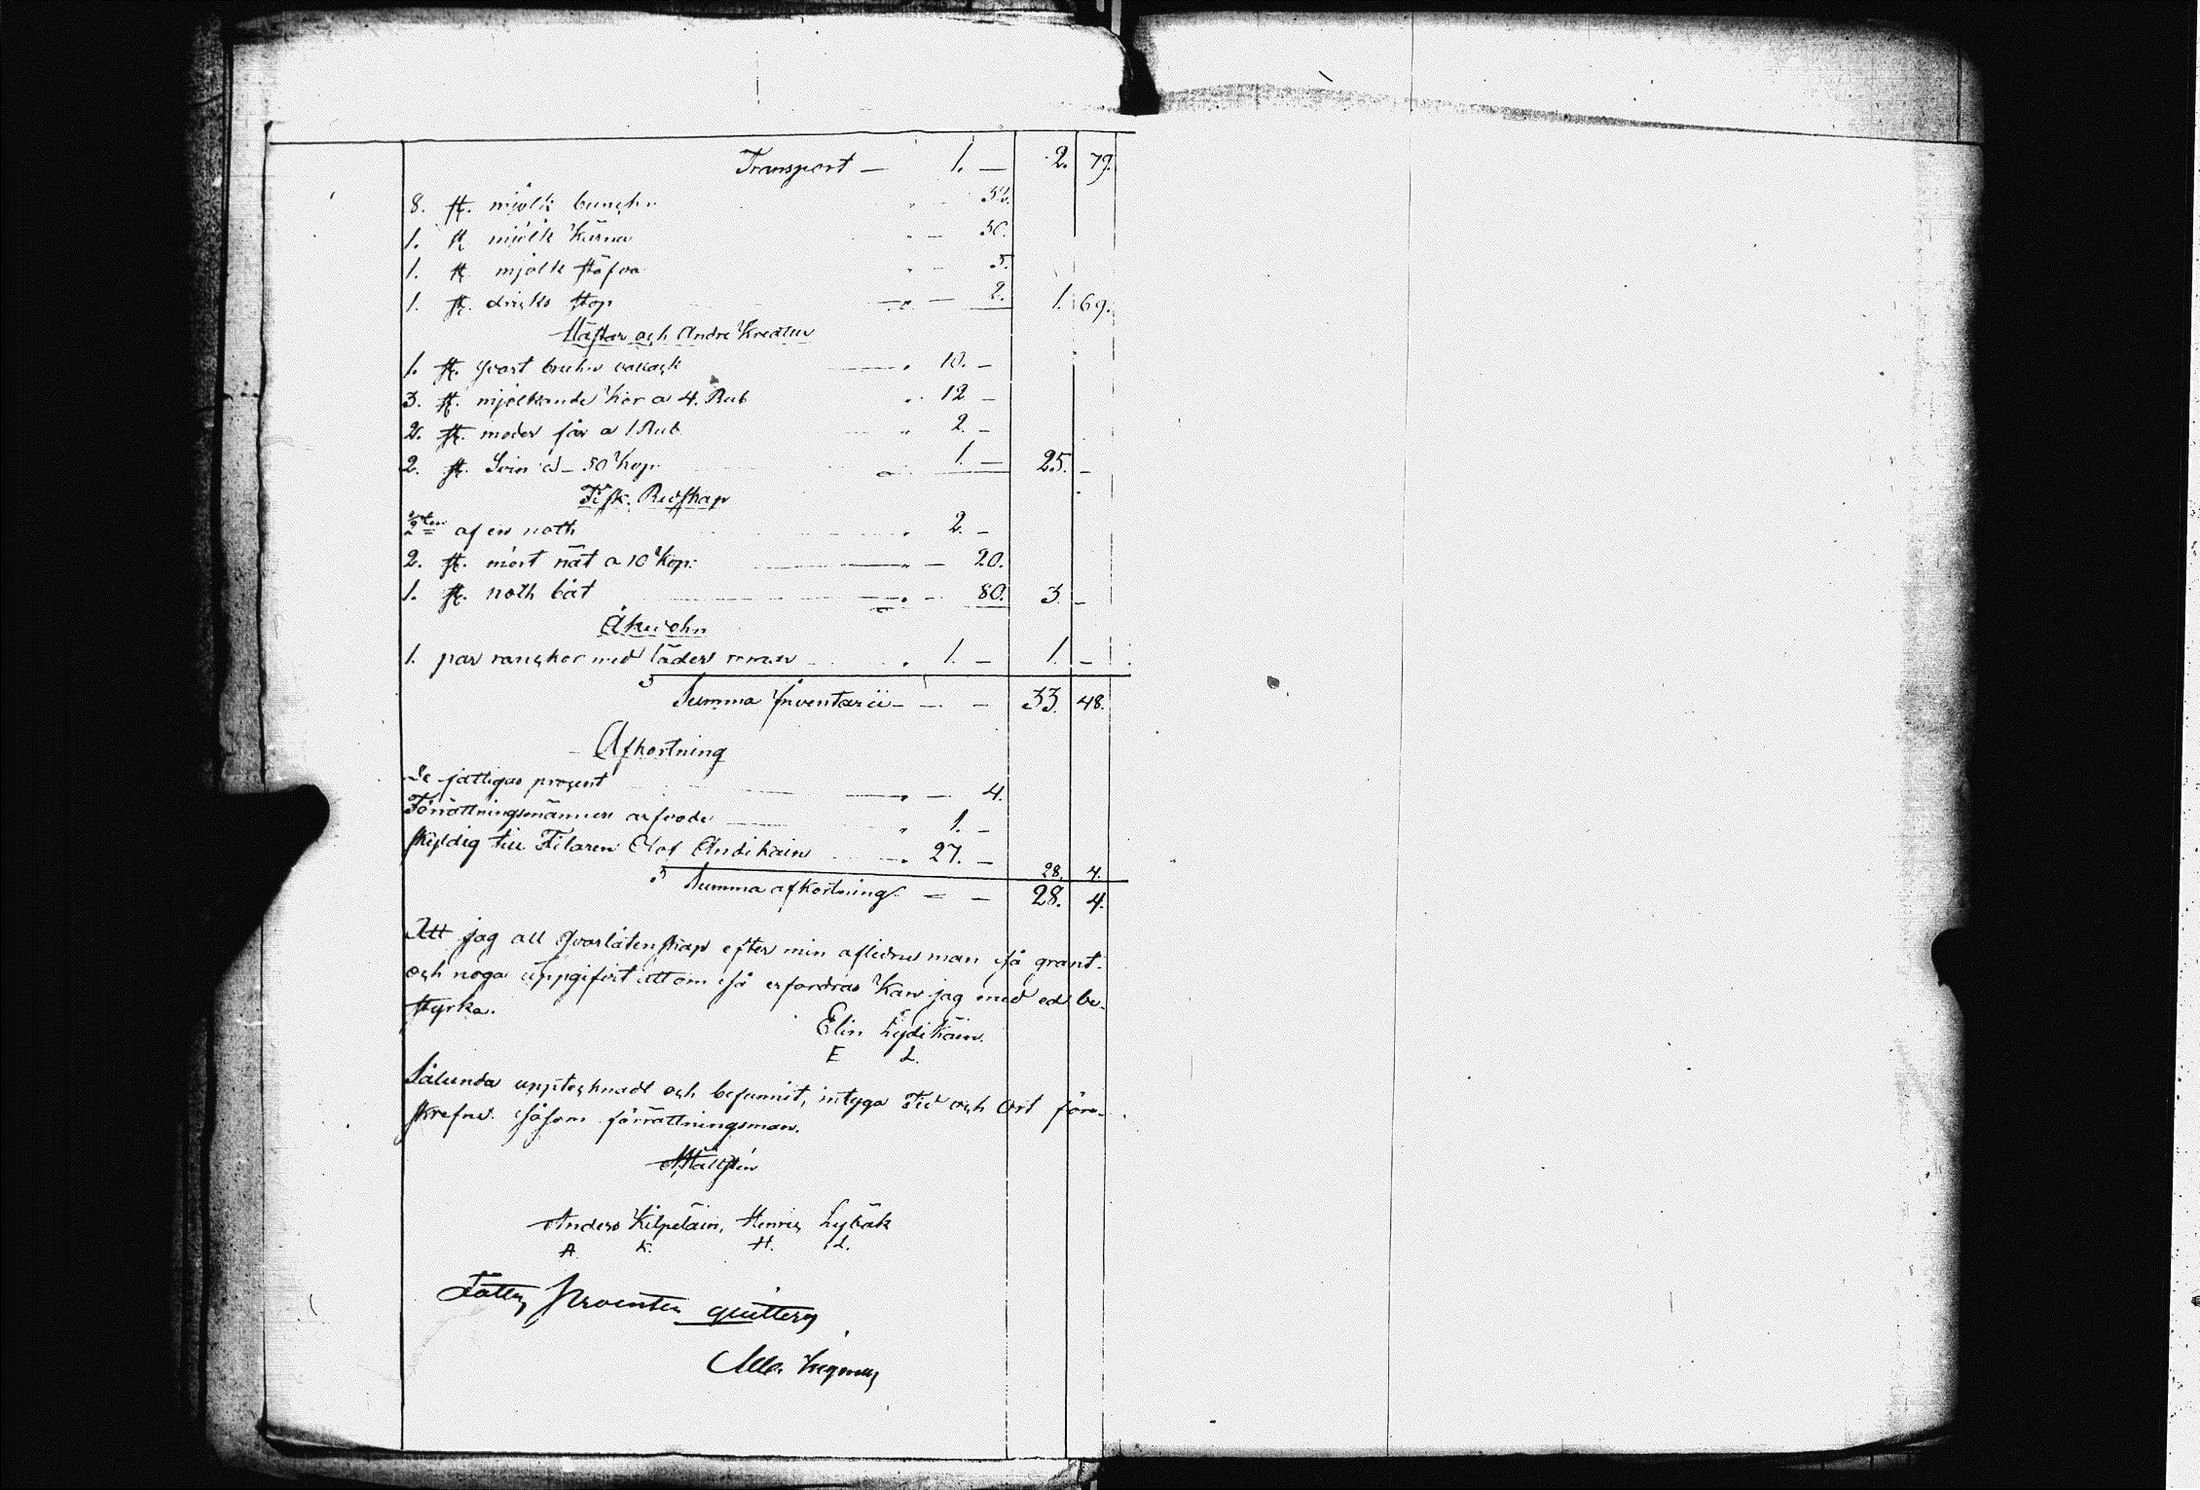 Transport — 1. — 2. 79.
8. st. mjölk bunckar " — 32.
1. st mjölk Kärna " — 30.
1. st. mjölk stäfva " — 5.
1. st. dricks stop " — 2. 1. 69.
Hästar och Andre Kreatur
1. st. svart brun vallack " 10. —
3. st. mjölkande Kor a 4. Rub " 12 —
2. st. moder får a 1 Rub " 2. —
2. st. Svin a — 50 Kop. " 1. — 25. —
Fisk. Redskap
af en noth " 2. —
2. st. mört nät a 10 Kop. " — 20.
1. st. noth båt " — 80. 3. —
Åkedohn
1. par ranckor med läder " 1. — 1. —
Summa Inventarii — — — 33. 48.
Afkortning
De fattigas procent " — 4.
Förrättningsmännens arfvode " 1. —
skyldig till Olof Andikain " 27. — 28. 4.
Summa afkortning — — 28. 4.
Att jag all qvarlåtenskap efter min aflidne man så grant
och noga uppgifvit att om så erfordras Kan jag med ed be-
styrka.
Elin Lydikäin.
E L.
Sålunda upptecknadt och befunnit, intyga Tid och Ort före-
skrefne. såsom förrättningsman.
Anders Kilpeläin, Henric Lybäk
A. K. H. L.
Fattig Procenten quitteras